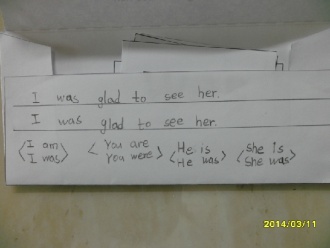 I was glad to see her.
I was glad to see her.
I am You are He is She is
I was You were He was She was
2014/03/11